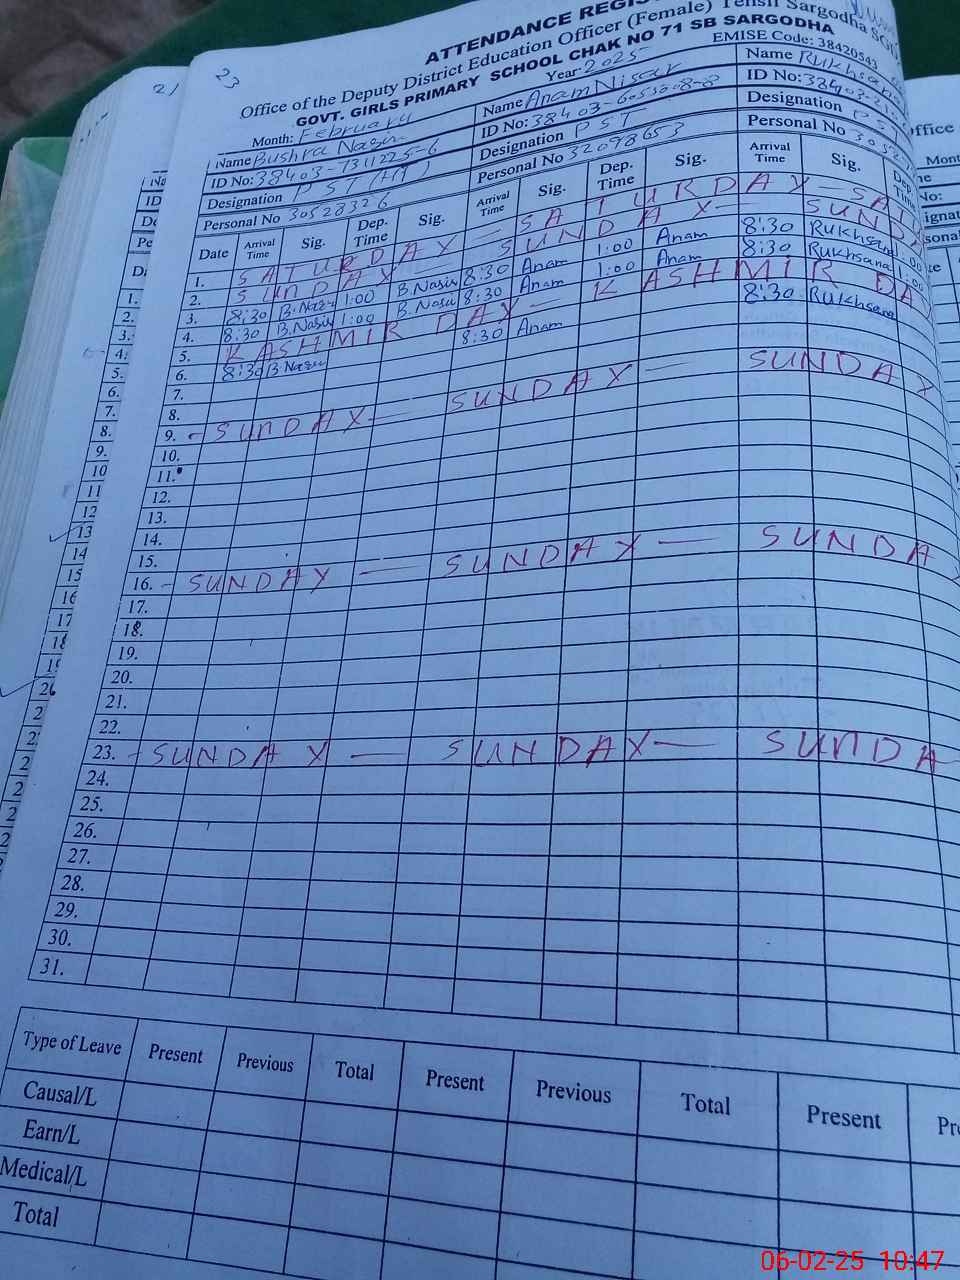 23
ATTENDANCE REGIS
Office of the Deputy District Education Officer (Female) Tehsil Sargodha
GOVT. GIRLS PRIMARY SCHOOL CHAK NO 71 SB SARGODHA
EMISE Code: 38420543
Month: February Year 2025
Name Bushra Nasir Name Anam Nisar Name Rukhsana
ID No: 38403-7311225-6 ID No: 38403-6053608-8 ID No: 38403-
Designation PST (H) Designation PST Designation PST
Personal No 30528326 Personal No 32098653 Personal No
Date Arrival Time Sig. Dep. Time Sig. Arrival Time Sig. Dep. Time Sig. Arrival Time Sig. Dep. Time
1. SATURDAY — SATURDAY — SAT
2. SUNDAY — SUNDAY — SUNDA
3. 8:30 B.Nasir 1:00 B.Nasir 8:30 Anam 1:00 Anam 8:30 Rukhsana 1:00
4. 8:30 B.Nasir 1:00 B.Nasir 8:30 Anam 1:00 Anam 8:30 Rukhsana 1:00
5. KASHMIR DAY — KASHMIR DA
6. 8:30 B.Nasir 8:30 Anam 8:30 Rukhsana
7.
8.
9. - SUNDAY — SUNDAY — SUNDAY
10.
11.
12.
13.
14.
15.
16. - SUNDAY — SUNDAY — SUNDA
17.
18.
19.
20.
21.
22.
23. - SUNDAY — SUNDAY — SUNDA
24.
25.
26.
27.
28.
29.
30.
31.
Type of Leave Present Previous Total Present Previous Total Present Pr
Causal/L
Earn/L
Medical/L
Total
21
1.
2.
3.
4.
5.
6.
7.
8.
9.
10
11
12
13
14
15
16
17
18
ffice
Mont
No:
06-02-25 10:47